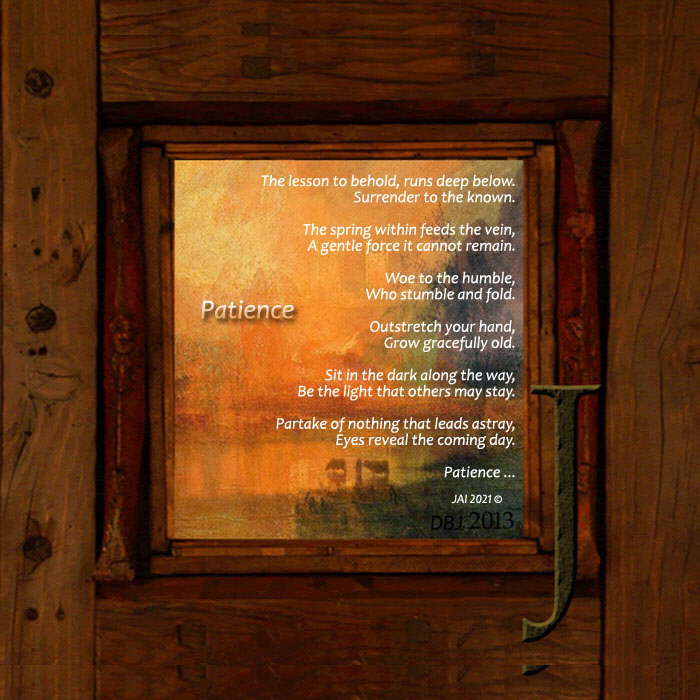 The lesson to behold, runs deep below.
Surrender to the known.
The spring within feeds the vein,
A gentle force it cannot remain.
Woe to the humble,
Who stumble and fold.
Patience
Outstretch your hand,
Grow gracefully old.
Sit in the dark along the way,
Be the light that others may stay.
Partake of nothing that leads astray,
Eyes reveal the coming day.
Patience ...
JAI 2021 ©
DBJ 2013
J